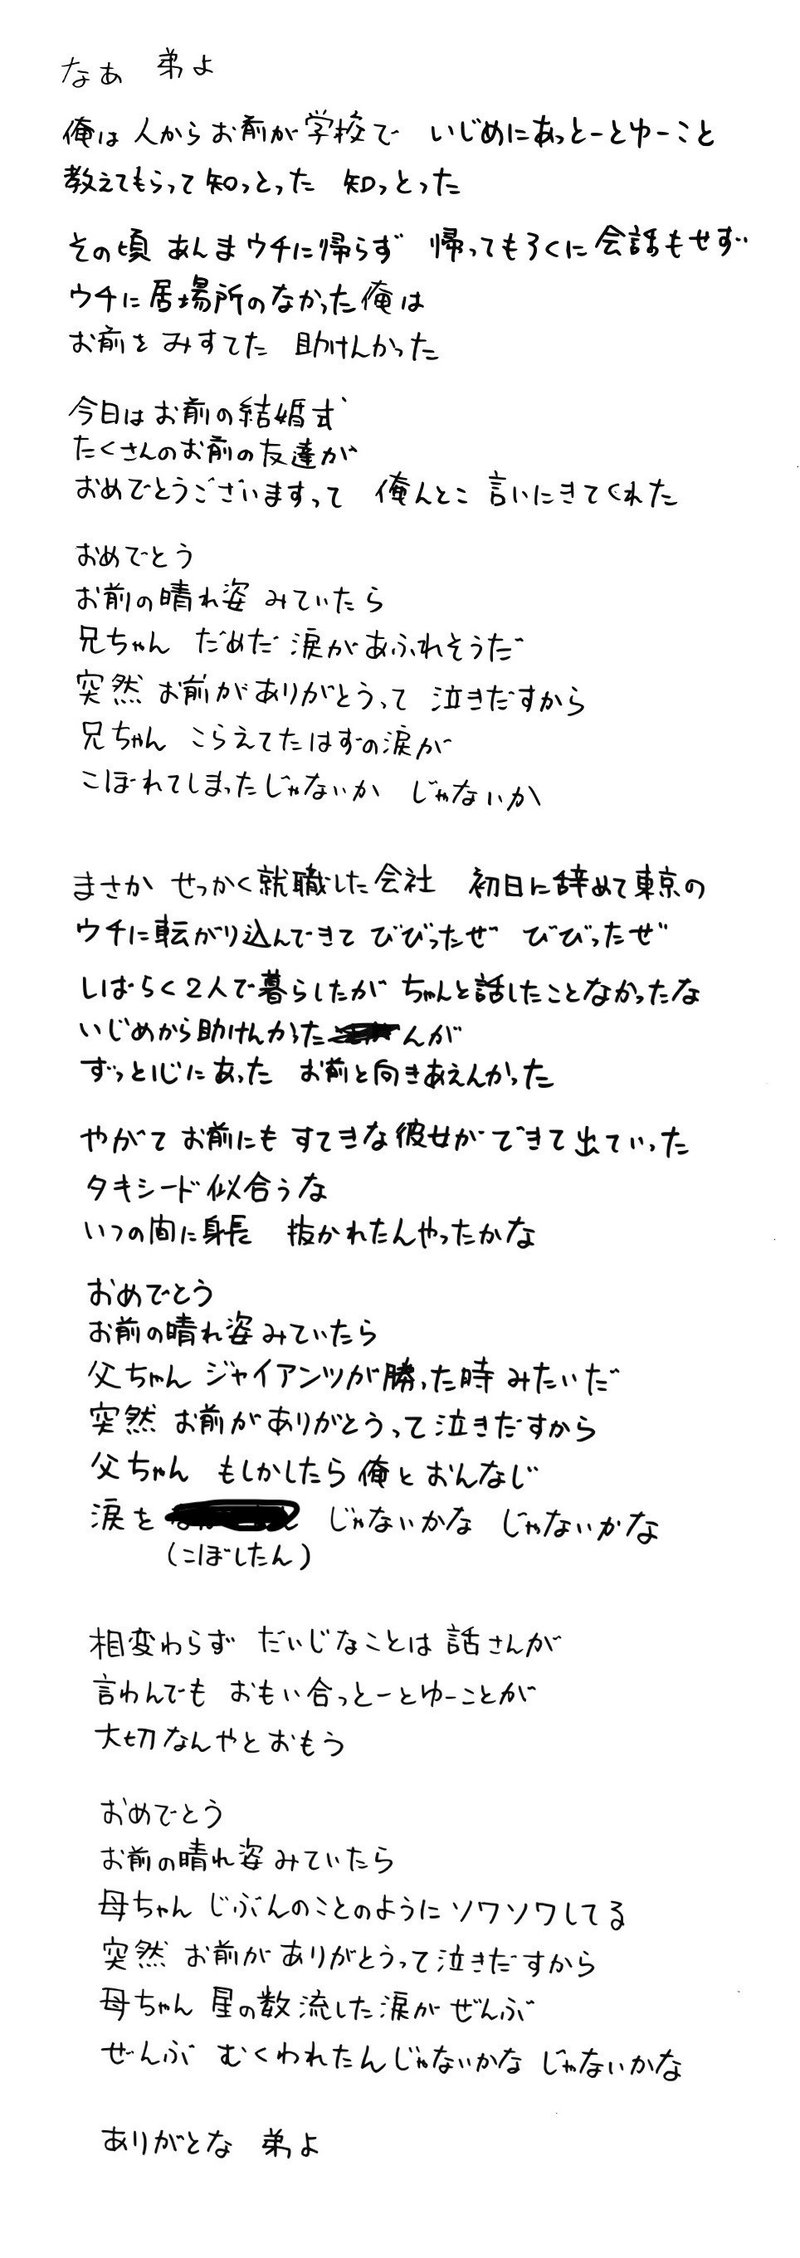 なぁ 弟よ
俺は 人から お前が 学校で いじめにあっとーとゆーこと
教えてもらって 知っとった 知っとった
その頃 あんまウチに帰らず 帰ってもろくに 会話もせず
ウチに居場所のなかった俺は
お前を みすてた 助けんかった
今日は お前の結婚式
たくさんのお前の友達が
おめでとうございますって 俺んとこ 言いにきてくれた
おめでとう
お前の晴れ姿 みていたら
兄ちゃん だめだ 涙があふれそうだ
突然 お前が ありがとうって 泣きだすから
兄ちゃん こらえてたはずの涙が
こぼれてしまったじゃないか じゃないか
まさか せっかく就職した会社 初日に辞めて東京の
ウチに転がり込んできて びびったぜ びびったぜ
しばらく2人で暮らしたが ちゃんと話したことなかったな
いじめから助けんかったんが
ずっと心にあった お前と向きあえんかった
やがて お前にも すてきな彼女ができて出ていった
タキシード似合うな
いつの間に身長 抜かれたんやったかな
おめでとう
お前の晴れ姿 みていたら
父ちゃん ジャイアンツが勝った時 みたいだ
突然 お前がありがとうって泣きだすから
父ちゃん もしかしたら 俺と おんなじ
涙を じゃないかな じゃないかな
(こぼしたん)
相変わらず だいじなことは 話さんが
言わんでも おもい合っとーとゆーことが
大切なんやとおもう
おめでとう
お前の晴れ姿 みていたら
母ちゃん じぶんのことのように ソワソワしてる
突然 お前が ありがとうって泣きだすから
母ちゃん 星の数流した涙が ぜんぶ
ぜんぶ むくわれたんじゃないかな じゃないかな
ありがとな 弟よ